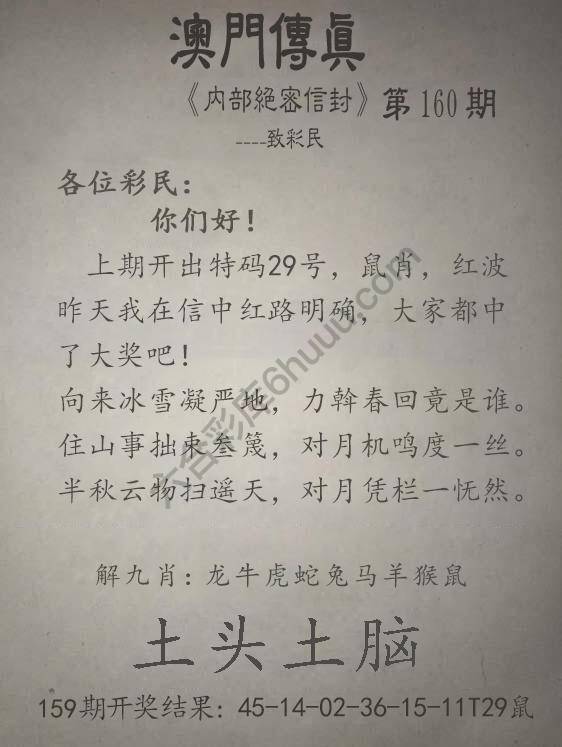 澳門傳眞
《内部絕密信封》第160期
----致彩民
各位彩民：
你们好！
上期开出特码29号，鼠肖，红波
昨天我在信中红路明确，大家都中
了大奖吧！
向来冰雪凝严地，力斡春回竟是谁。
住山事拙束叁篾，对月机鸣度一丝。
半秋云物扫遥天，对月凭栏一怃然。
解九肖：龙牛虎蛇兔马羊猴鼠
土头土脑
159期开奖结果：45-14-02-36-15-11T29鼠
六合彩库6huuu.com